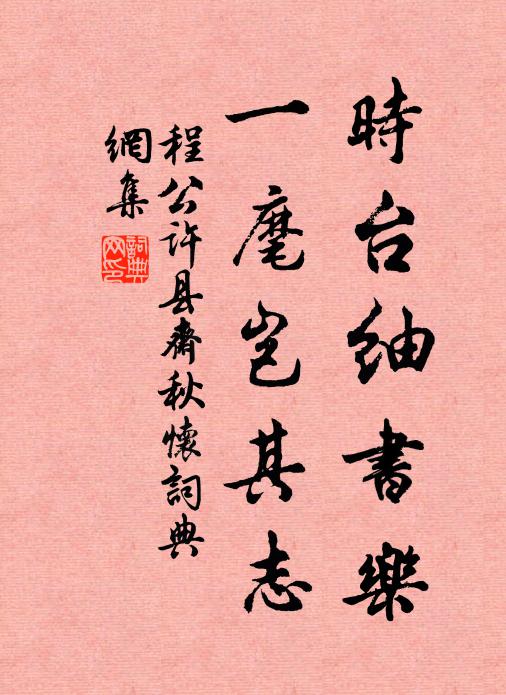 時台紬書樂
一麾岂其志
程公许县斋秋懷詞典
網集
詞典
网印